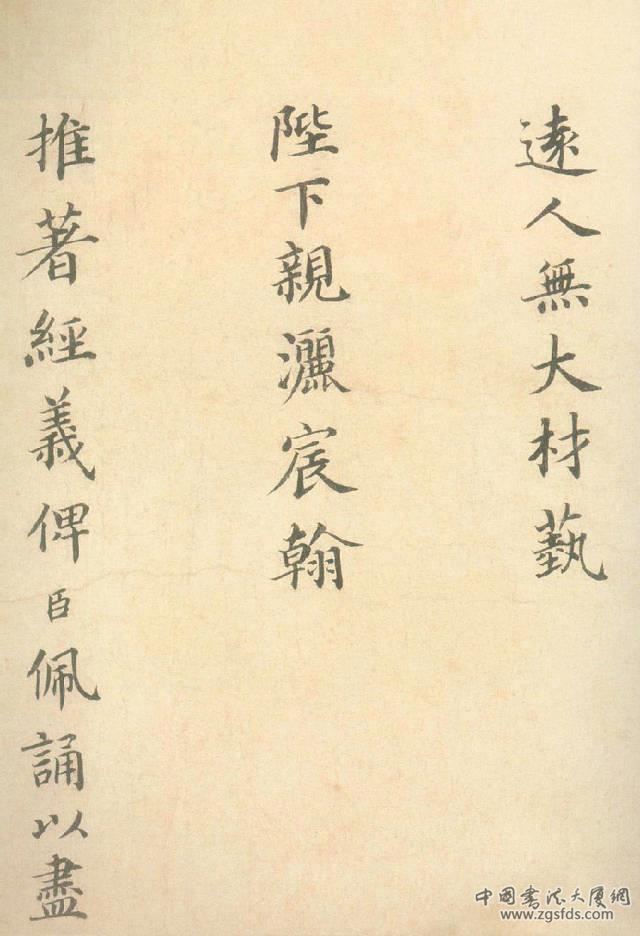 遠人無大材藝
陛下親灑宸翰
推著經義俾臣佩誦以盡
中国书法大厦網
www.zgsfds.com